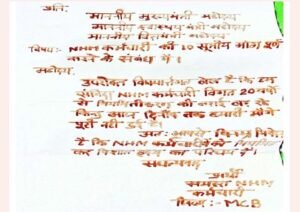 प्रति,
माननीय मुख्यमंत्री महोदय
माननीय स्वास्थ्य मंत्री महोदय
माननीय वित्तमंत्री महोदय
विषय:- NHM कर्मचारी की 10 सूत्रीय मांग पूर्ण
करने के संबंध में।
महोदय,
उपरोक्त विषयान्तर्गत लेख है कि हम
संविदा NHM कर्मचारी विगत 20 वर्षों
से नियमितीकरण की
किन्तु आज दिनांक तक हमारी मांगे
पूरी नही हुई है।
अतः आपसे विनम्र निवेदन
है कि NHM कर्मचारियों को नियमित
कर विशाल हृदय का परिचय दें।
सधन्यवाद
प्रार्थी
समस्त NHM
कर्मचारी
जिला:- MCB